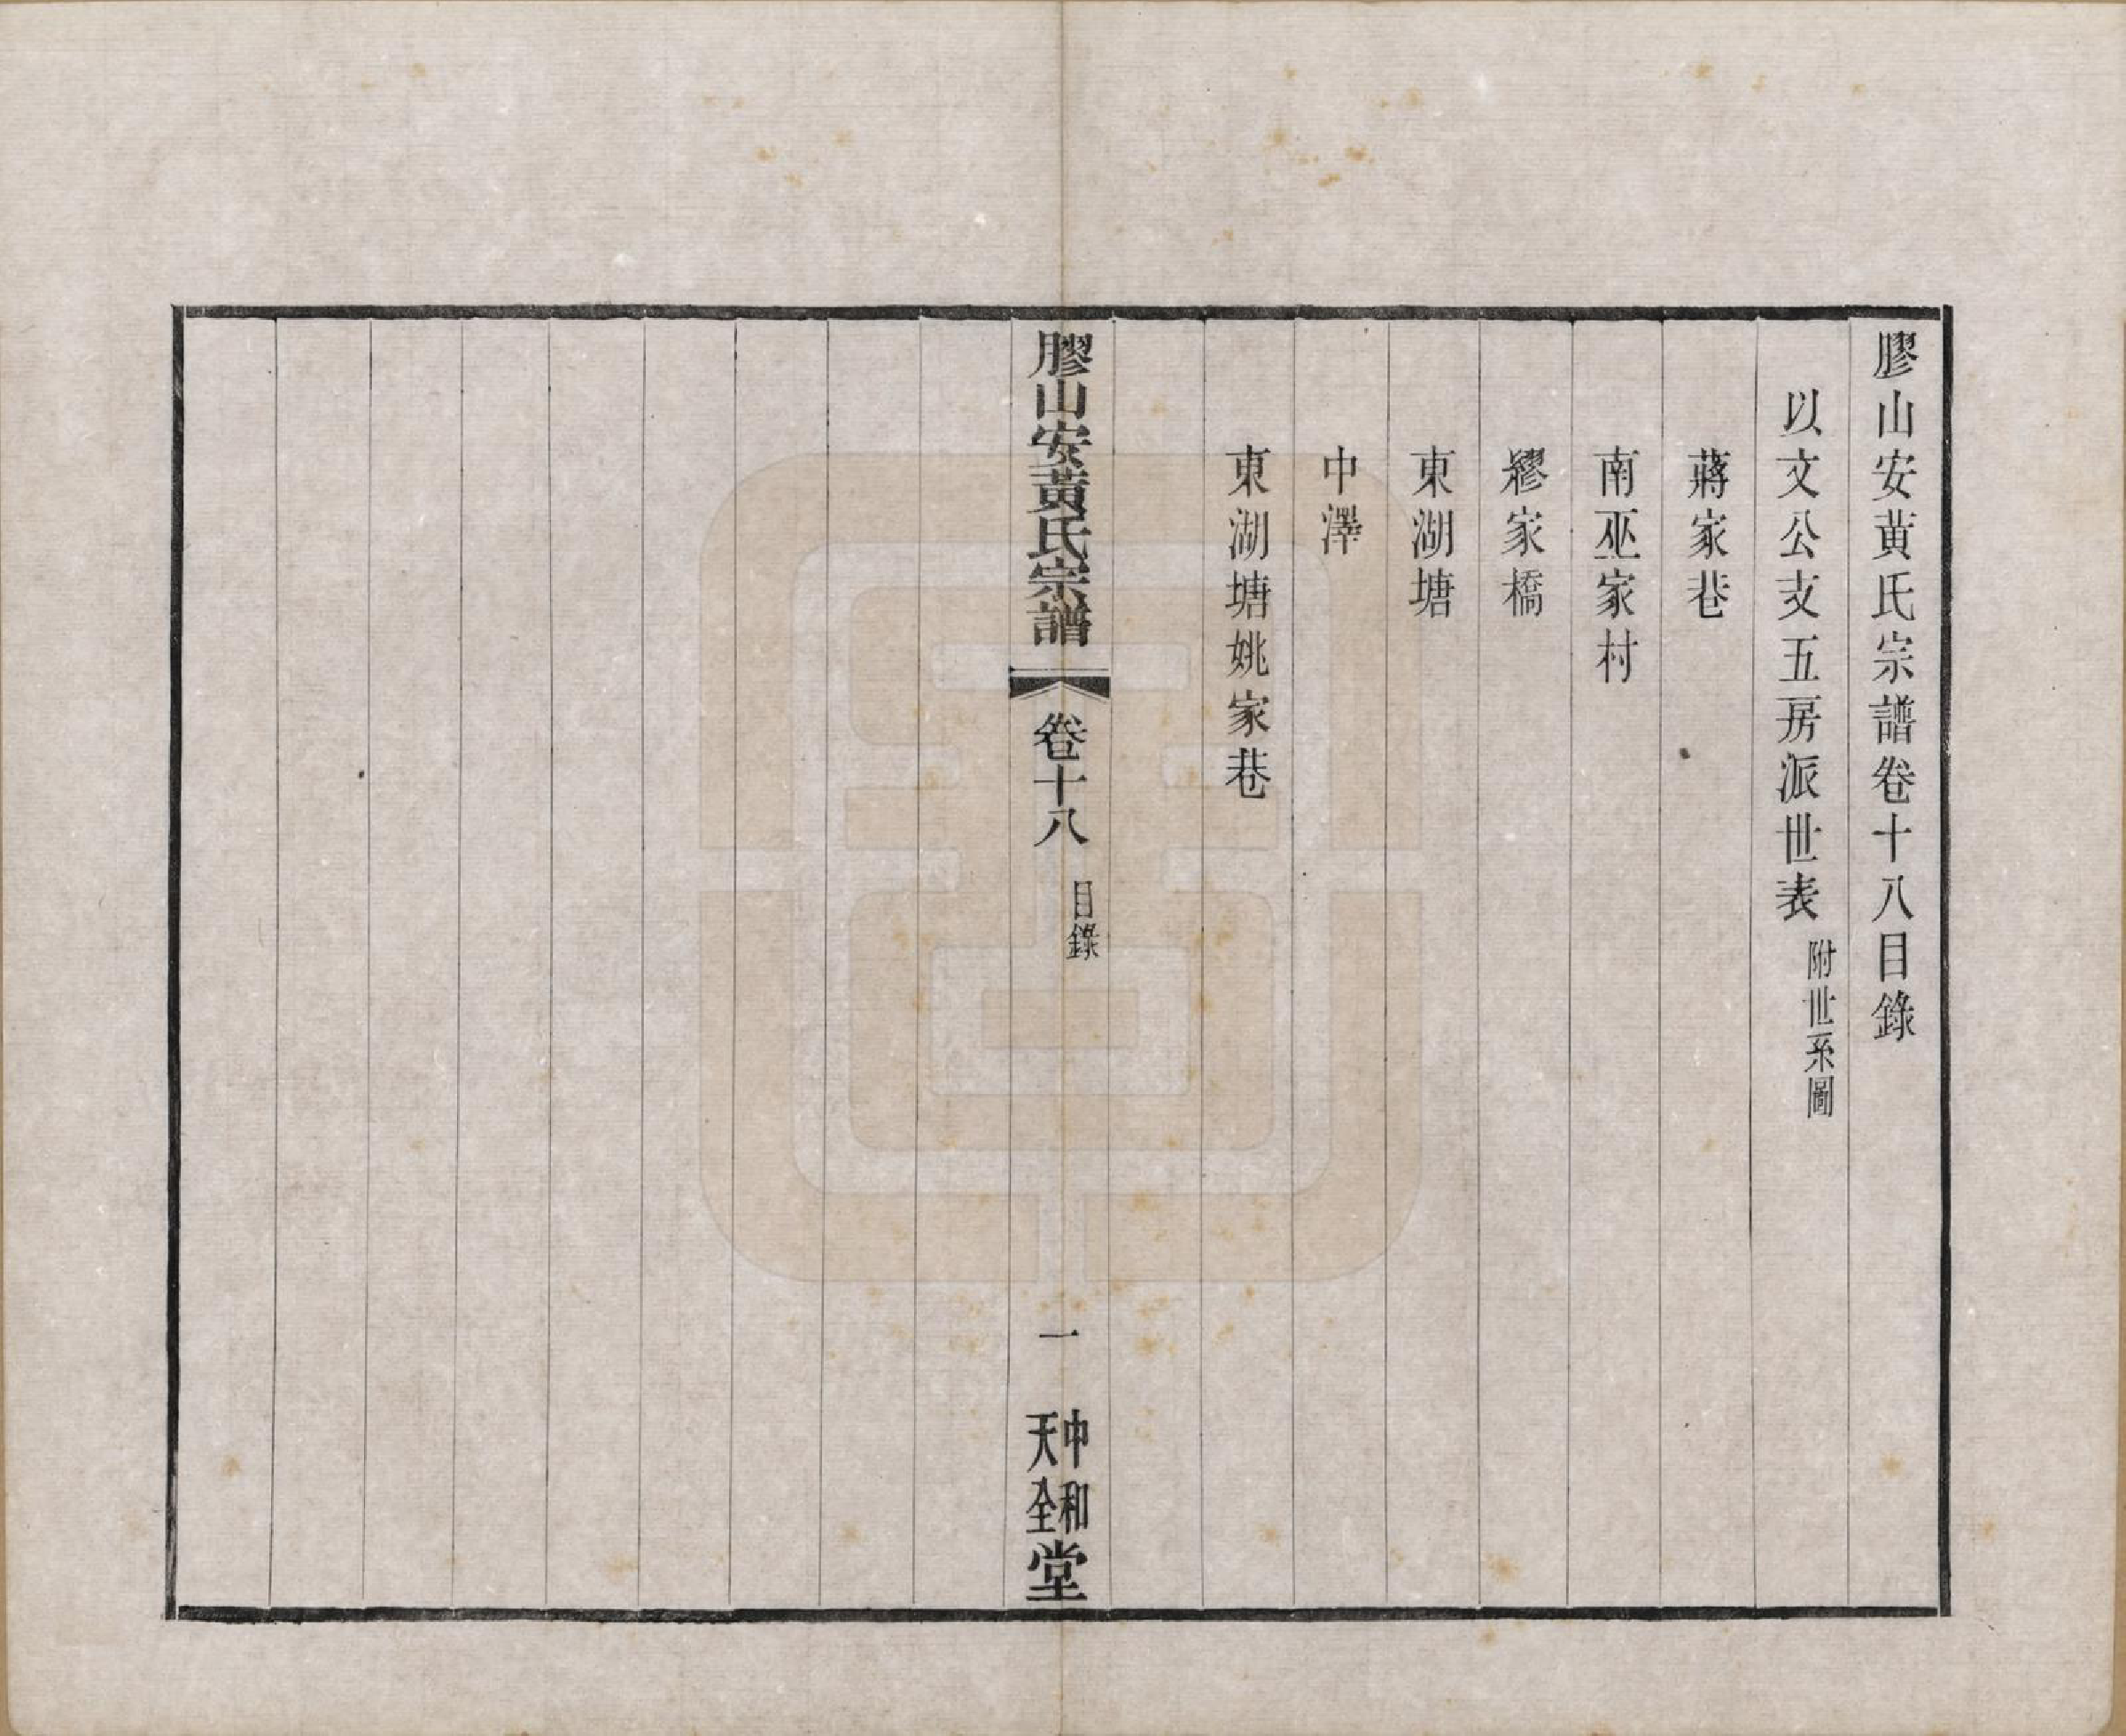 膠山安黄氏宗譜卷十八目錄
以文公支五房派世表 附世系圖
蔣家巷
南巫家村
繆家橋
東湖塘
中澤
東湖塘姚家巷
膠山安黃氏宗譜 卷十八 目錄 一 中和天全堂